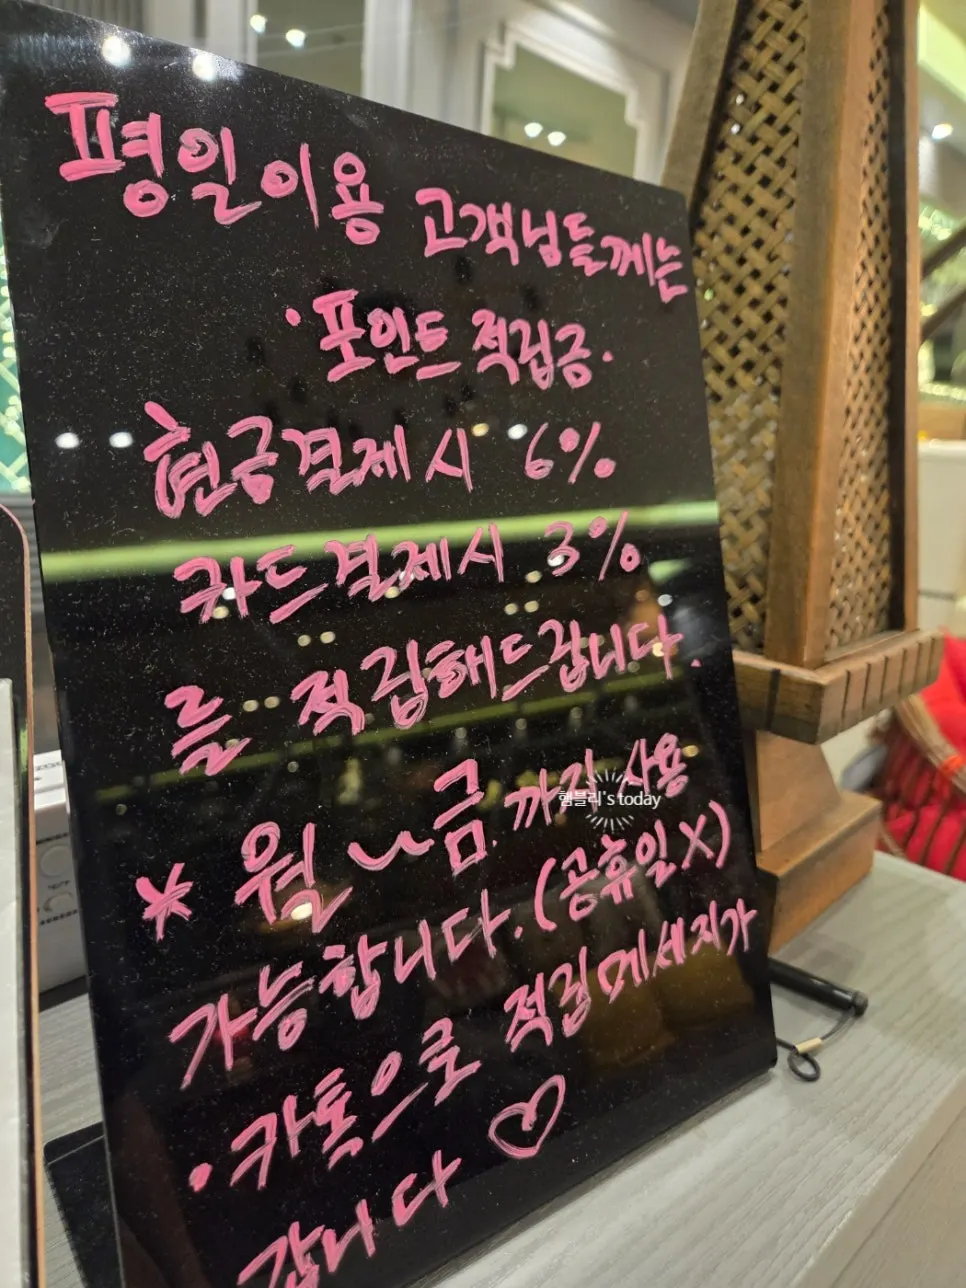 평일이용 고객님들께는
·포인트 적립금·
현금결제시 6%
카드결제시 3%
를 적립해드립니다.
* 월~금.까지 사용
햄블리's today
가능합니다.(공휴일X)
·카톡으로 적립메세지가
갑니다♡